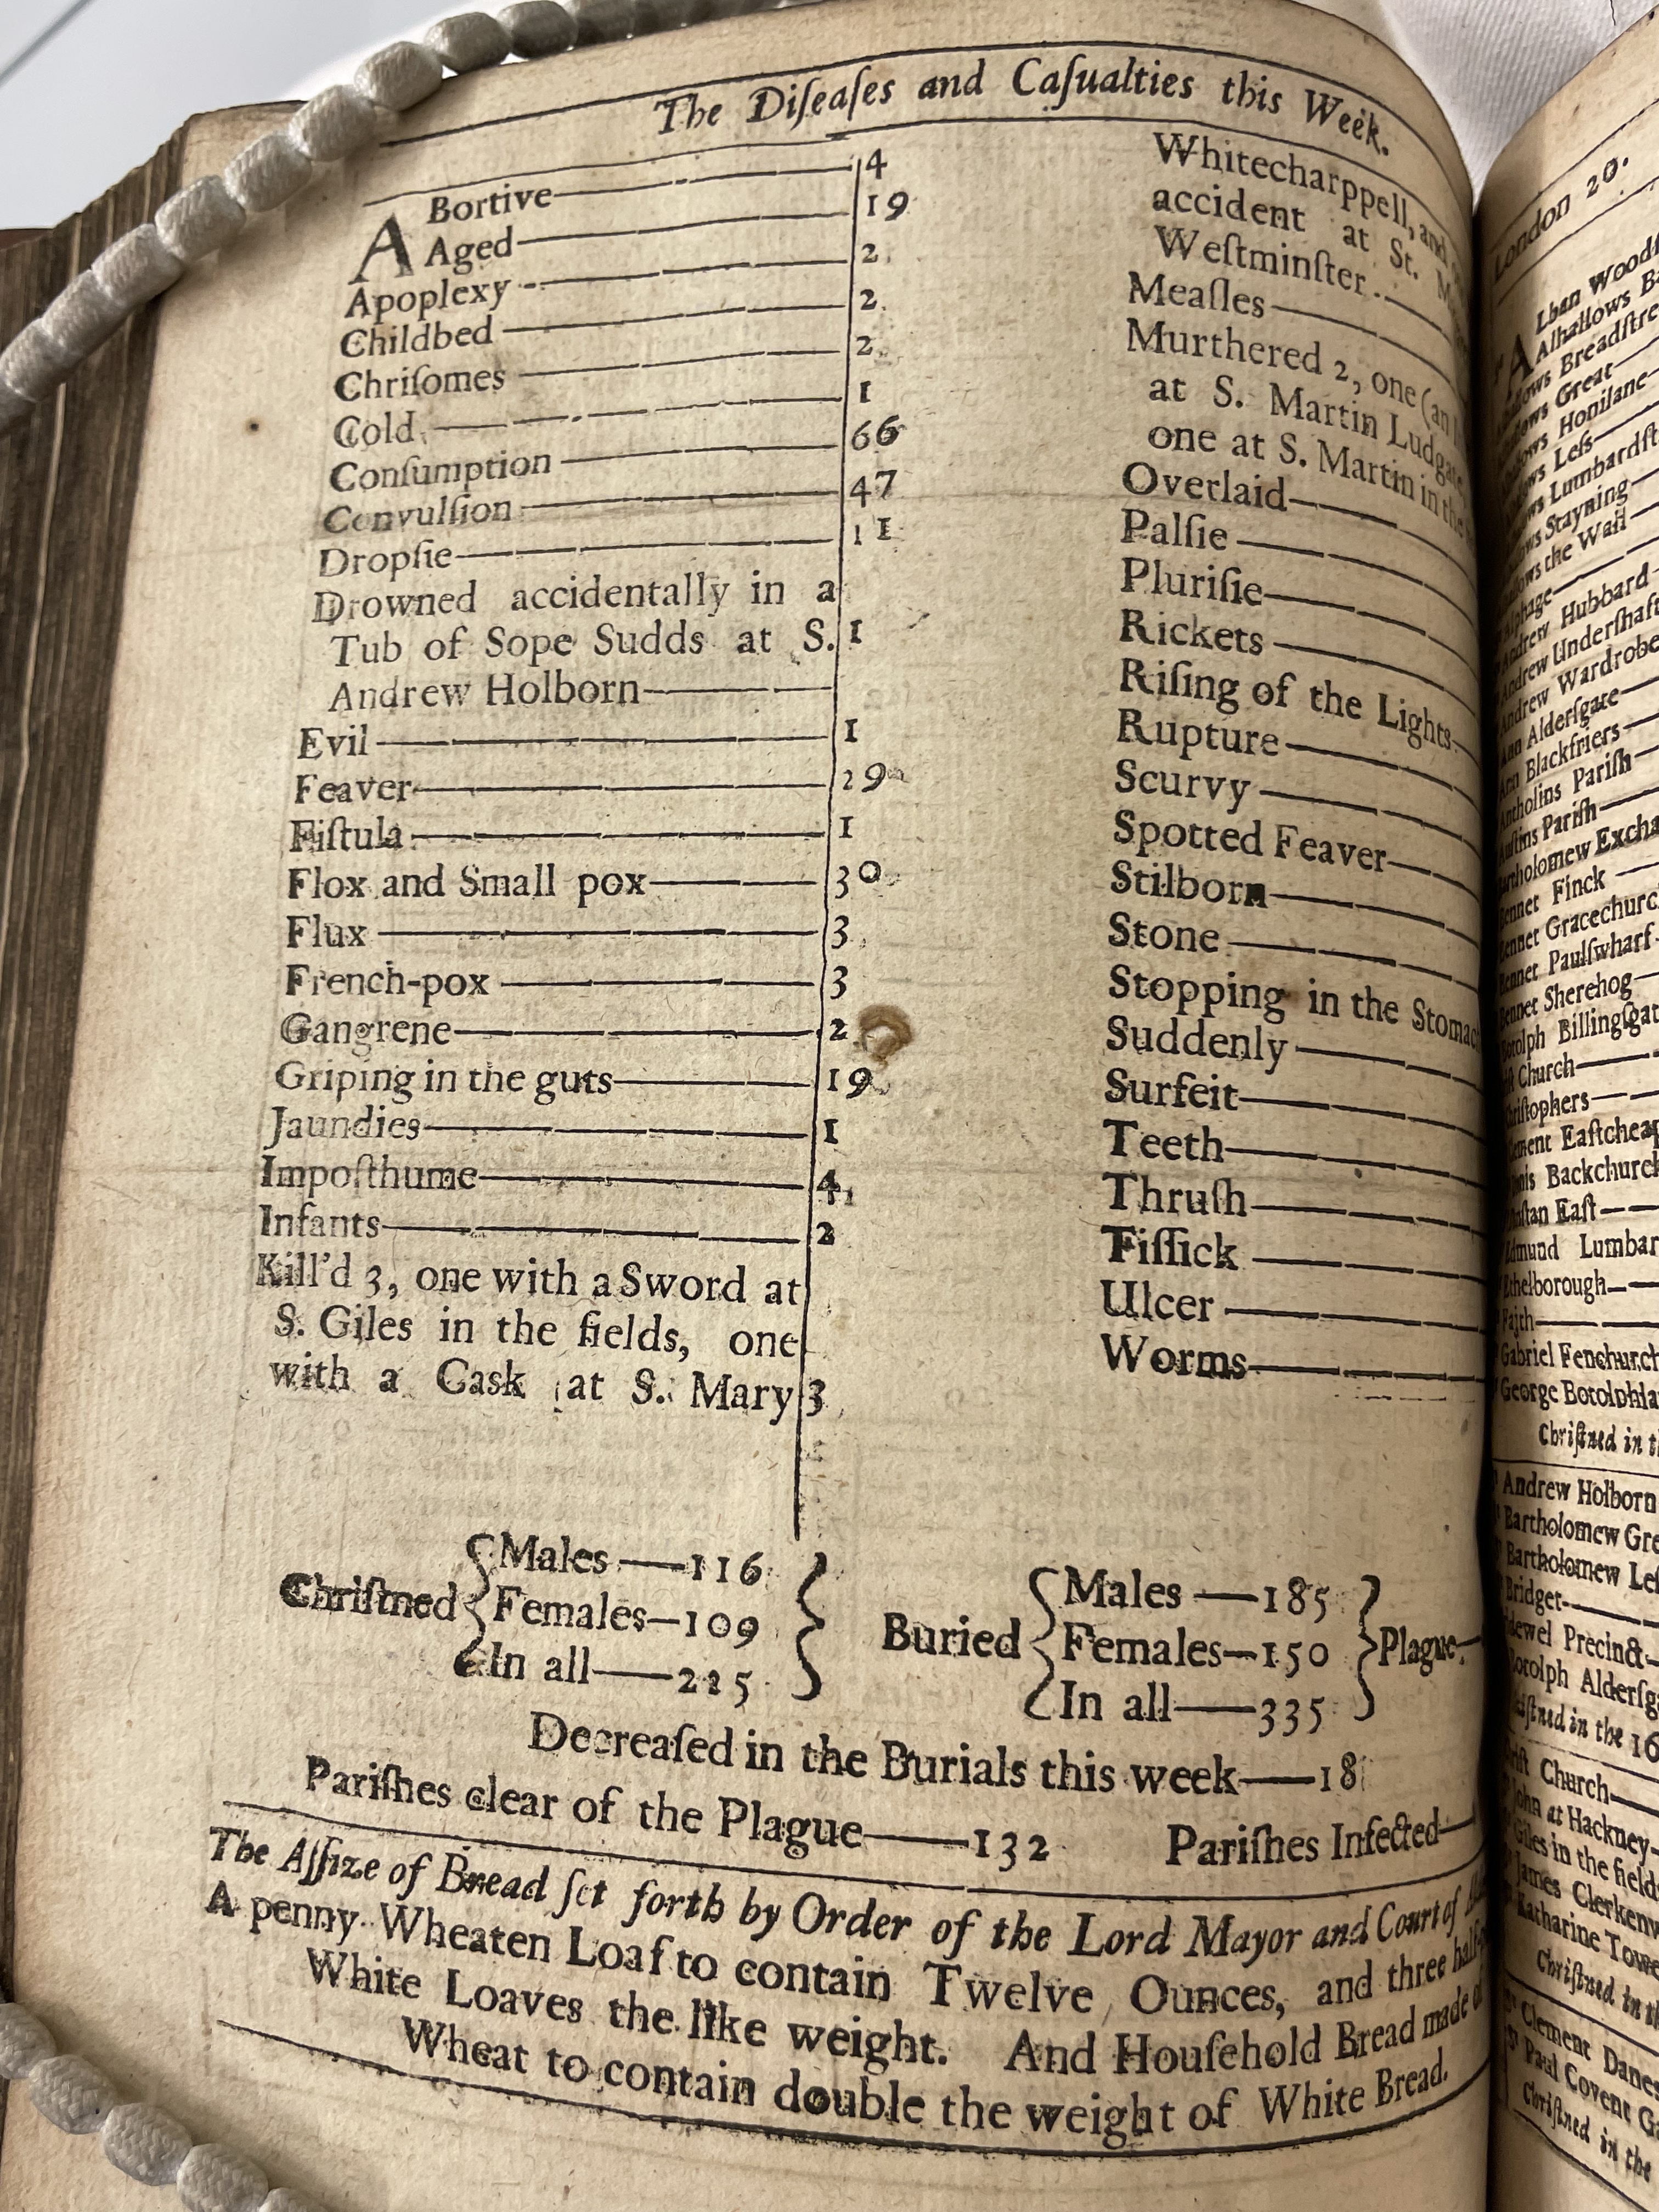 The Diſeaſes and Caſualties this Week.
ABortive 4
Aged 19
Apoplexy 2
Childbed 2
Chriſomes 2
Cold 1
Conſumption 66
Convulſion 47
Dropſie 11
Drowned accidentally in a
Tub of Sope Sudds at S. 1
Andrew Holborn
Evil 1
Feaver 29
Fiſtula 1
Flox and Small pox 30
Flux 3
French-pox 3
Gangrene 2
Griping in the guts 19
Jaundies 1
Impoſthume 4
Infants 2
Kill'd 3, one with a Sword at
S. Giles in the fields, one
with a Cask at S. Mary 3
Whitecharppell, and
accident at St.
Weſtminſter
Meaſles
Murthered 2, one (an
at S. Martin Ludgate
one at S. Martin in the
Overlaid
Palſie
Pluriſie
Rickets
Riſing of the Lights
Rupture
Scurvy
Spotted Feaver
Stilborn
Stone
Stopping in the Stomac
Suddenly
Surfeit
Teeth
Thruſh
Tiſſick
Ulcer
Worms
Chriſtned
Males—116
Females—109
In all—225
Buried
Males—185
Females—150
In all—335
Plague
Decreaſed in the Burials this week—18
Pariſhes clear of the Plague—132 Pariſhes Infected—
The Aſſize of Bread ſet forth by Order of the Lord Mayor and Court of
A penny Wheaten Loaf to contain Twelve Ounces, and three half
White Loaves the like weight. And Houſehold Bread made
Wheat to contain double the weight of White Bread.
London 20.
Alban Woodſ
Alhallows Ba
Breadſtre
Great
Honilane
Leſs
Lumbardſt
Stayning
the Wall
Hubbard
Underſhaft
Wardrobe
Ann Alderſgate
Ann Blackfriers
Pariſh
Pariſh
Excha
Finck
Gracechurc
Paulſwharf
Sherehog
Billingſgat
Church
Eaſtcheap
Backchurch
Eaſt
Lumbar
Faith
Gabriel Fenchurch
George Botolphla
Chriſtned in t
Andrew Holborn
Bartholomew Gre
Bartholomew Leſ
Bridget
Precinct
Alderſga
in the 16
Church
John at Hackney
Giles in the fields
James Clerkenw
Katharine Towe
Chriſtned in th
Clement Danes
Paul Covent Ga
Chriſtned in the